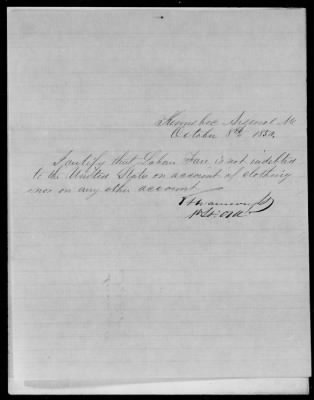 Kennebec Arsenal Me
October 8th 1850
I certify that Laban is not indebted
to the United States on account of clothing
on any other account